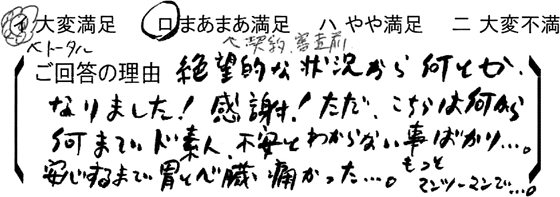 イ 大変満足 ロ まあまあ満足 ハ やや満足 ニ 大変不満
トータル 契約、審査前
ご回答の理由 絶望的な状況から何とか、
なりました！感謝！ただ、こちらは何から
何までド素人、不安とわからない事ばかり…。
安心するまで胃と心臓痛かった…。もっと
マンツーマンで…。